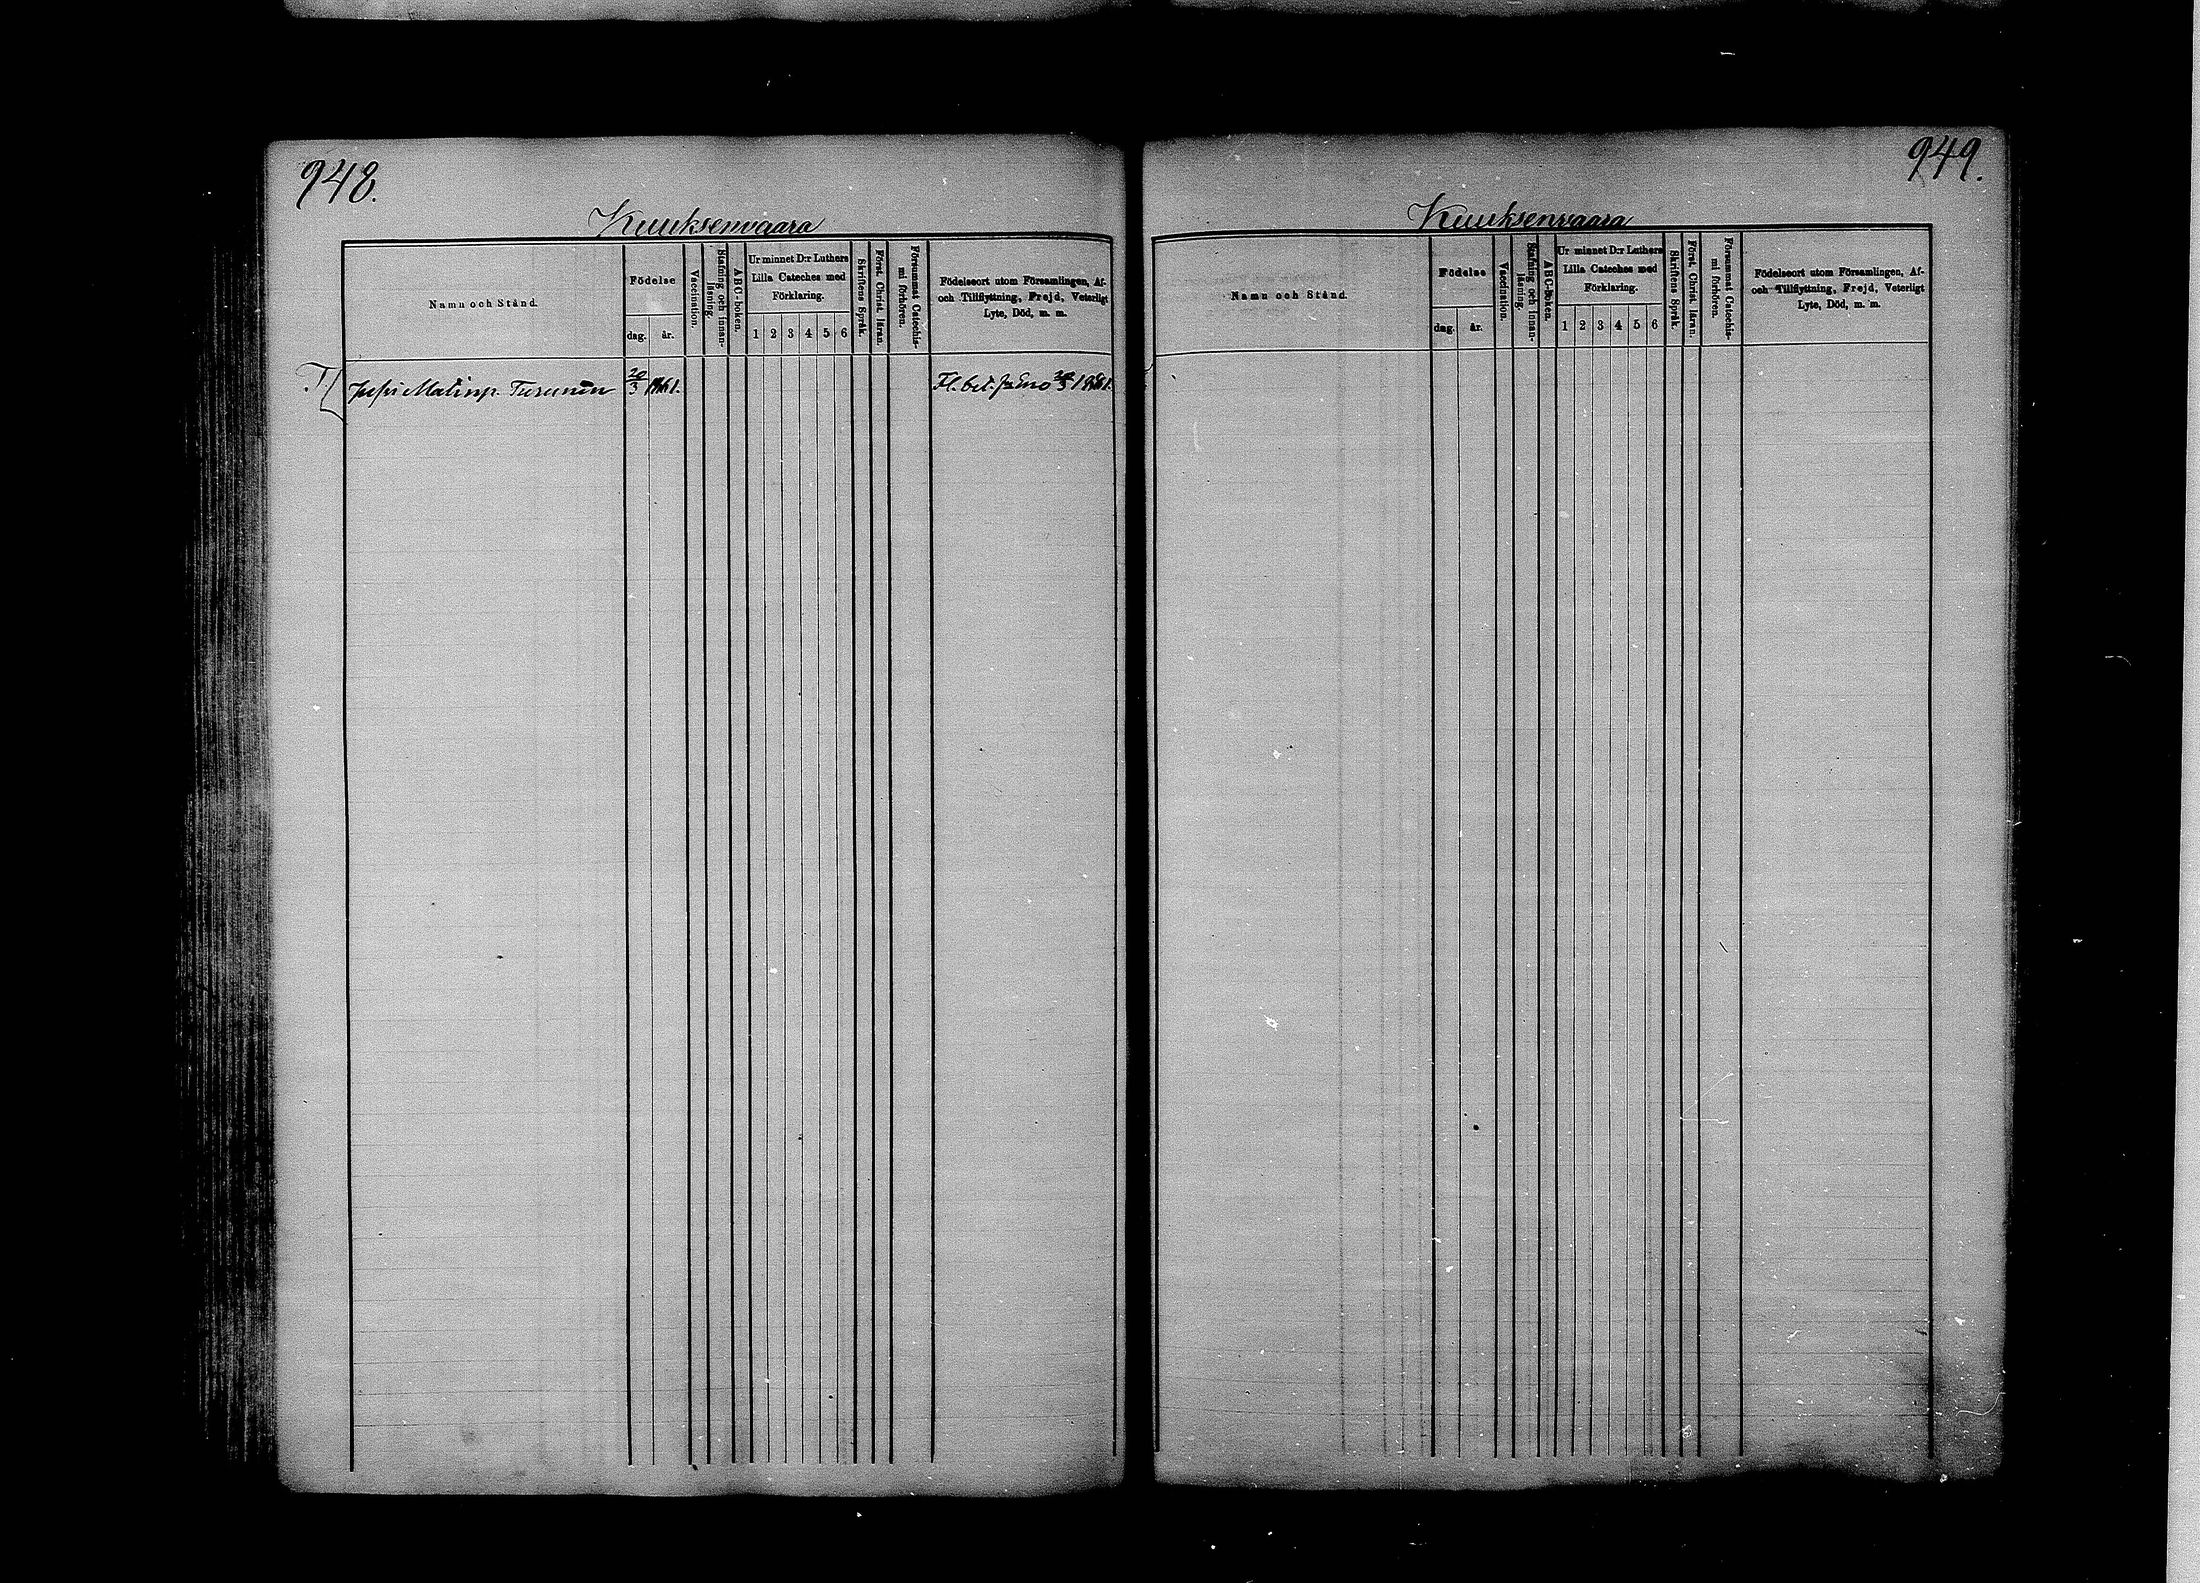 948.
Kuuksenvaara
Namn och Stånd.
Födelse
dag. år.
Vaccination.
Stafning och innan-
läsning.
ABC-boken.
Ur minnet D:r Luthers
Lilla Cateches med
Förklaring.
1 2 3 4 5 6
Skriftens Språk.
Först. Christ. läran.
Försummat Catechis-
mi förhören.
Födelseort utom Församlingen, Af-
och Tillflyttning, Frejd, Veterligt
Lyte, Död, m. m.
T. Jussi Matinp. Turunen 20/3 1861. Fl. bet. fr Eno 1881.
949.
Kuuksenvaara
Namn och Stånd.
Födelse
dag. år.
Vaccination.
Stafning och innan-
läsning.
ABC-boken.
Ur minnet D:r Luthers
Lilla Cateches med
Förklaring.
1 2 3 4 5 6
Skriftens Språk.
Först. Christ. läran.
Försummat Catechis-
mi förhören.
Födelseort utom Församlingen, Af-
och Tillflyttning, Frejd, Veterligt
Lyte, Död, m. m.